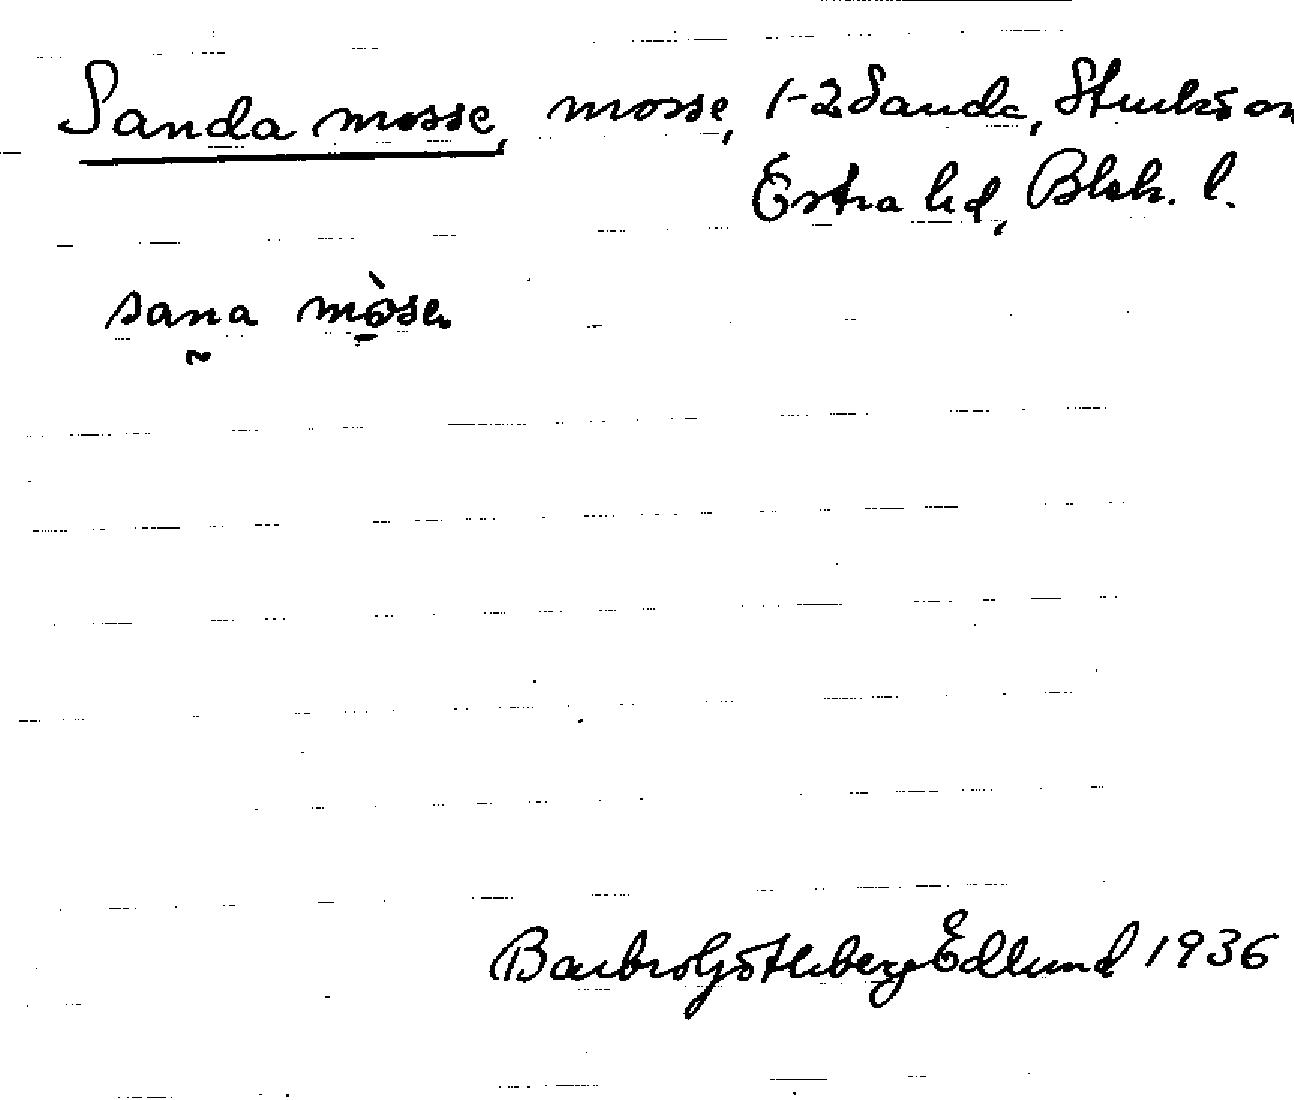 Sanda mosse, mosse, 1-2 Sanda, Sturkö sn
Östra hd, Blek. l.
sana mòse
Barbro Götheberg Edlund 1936